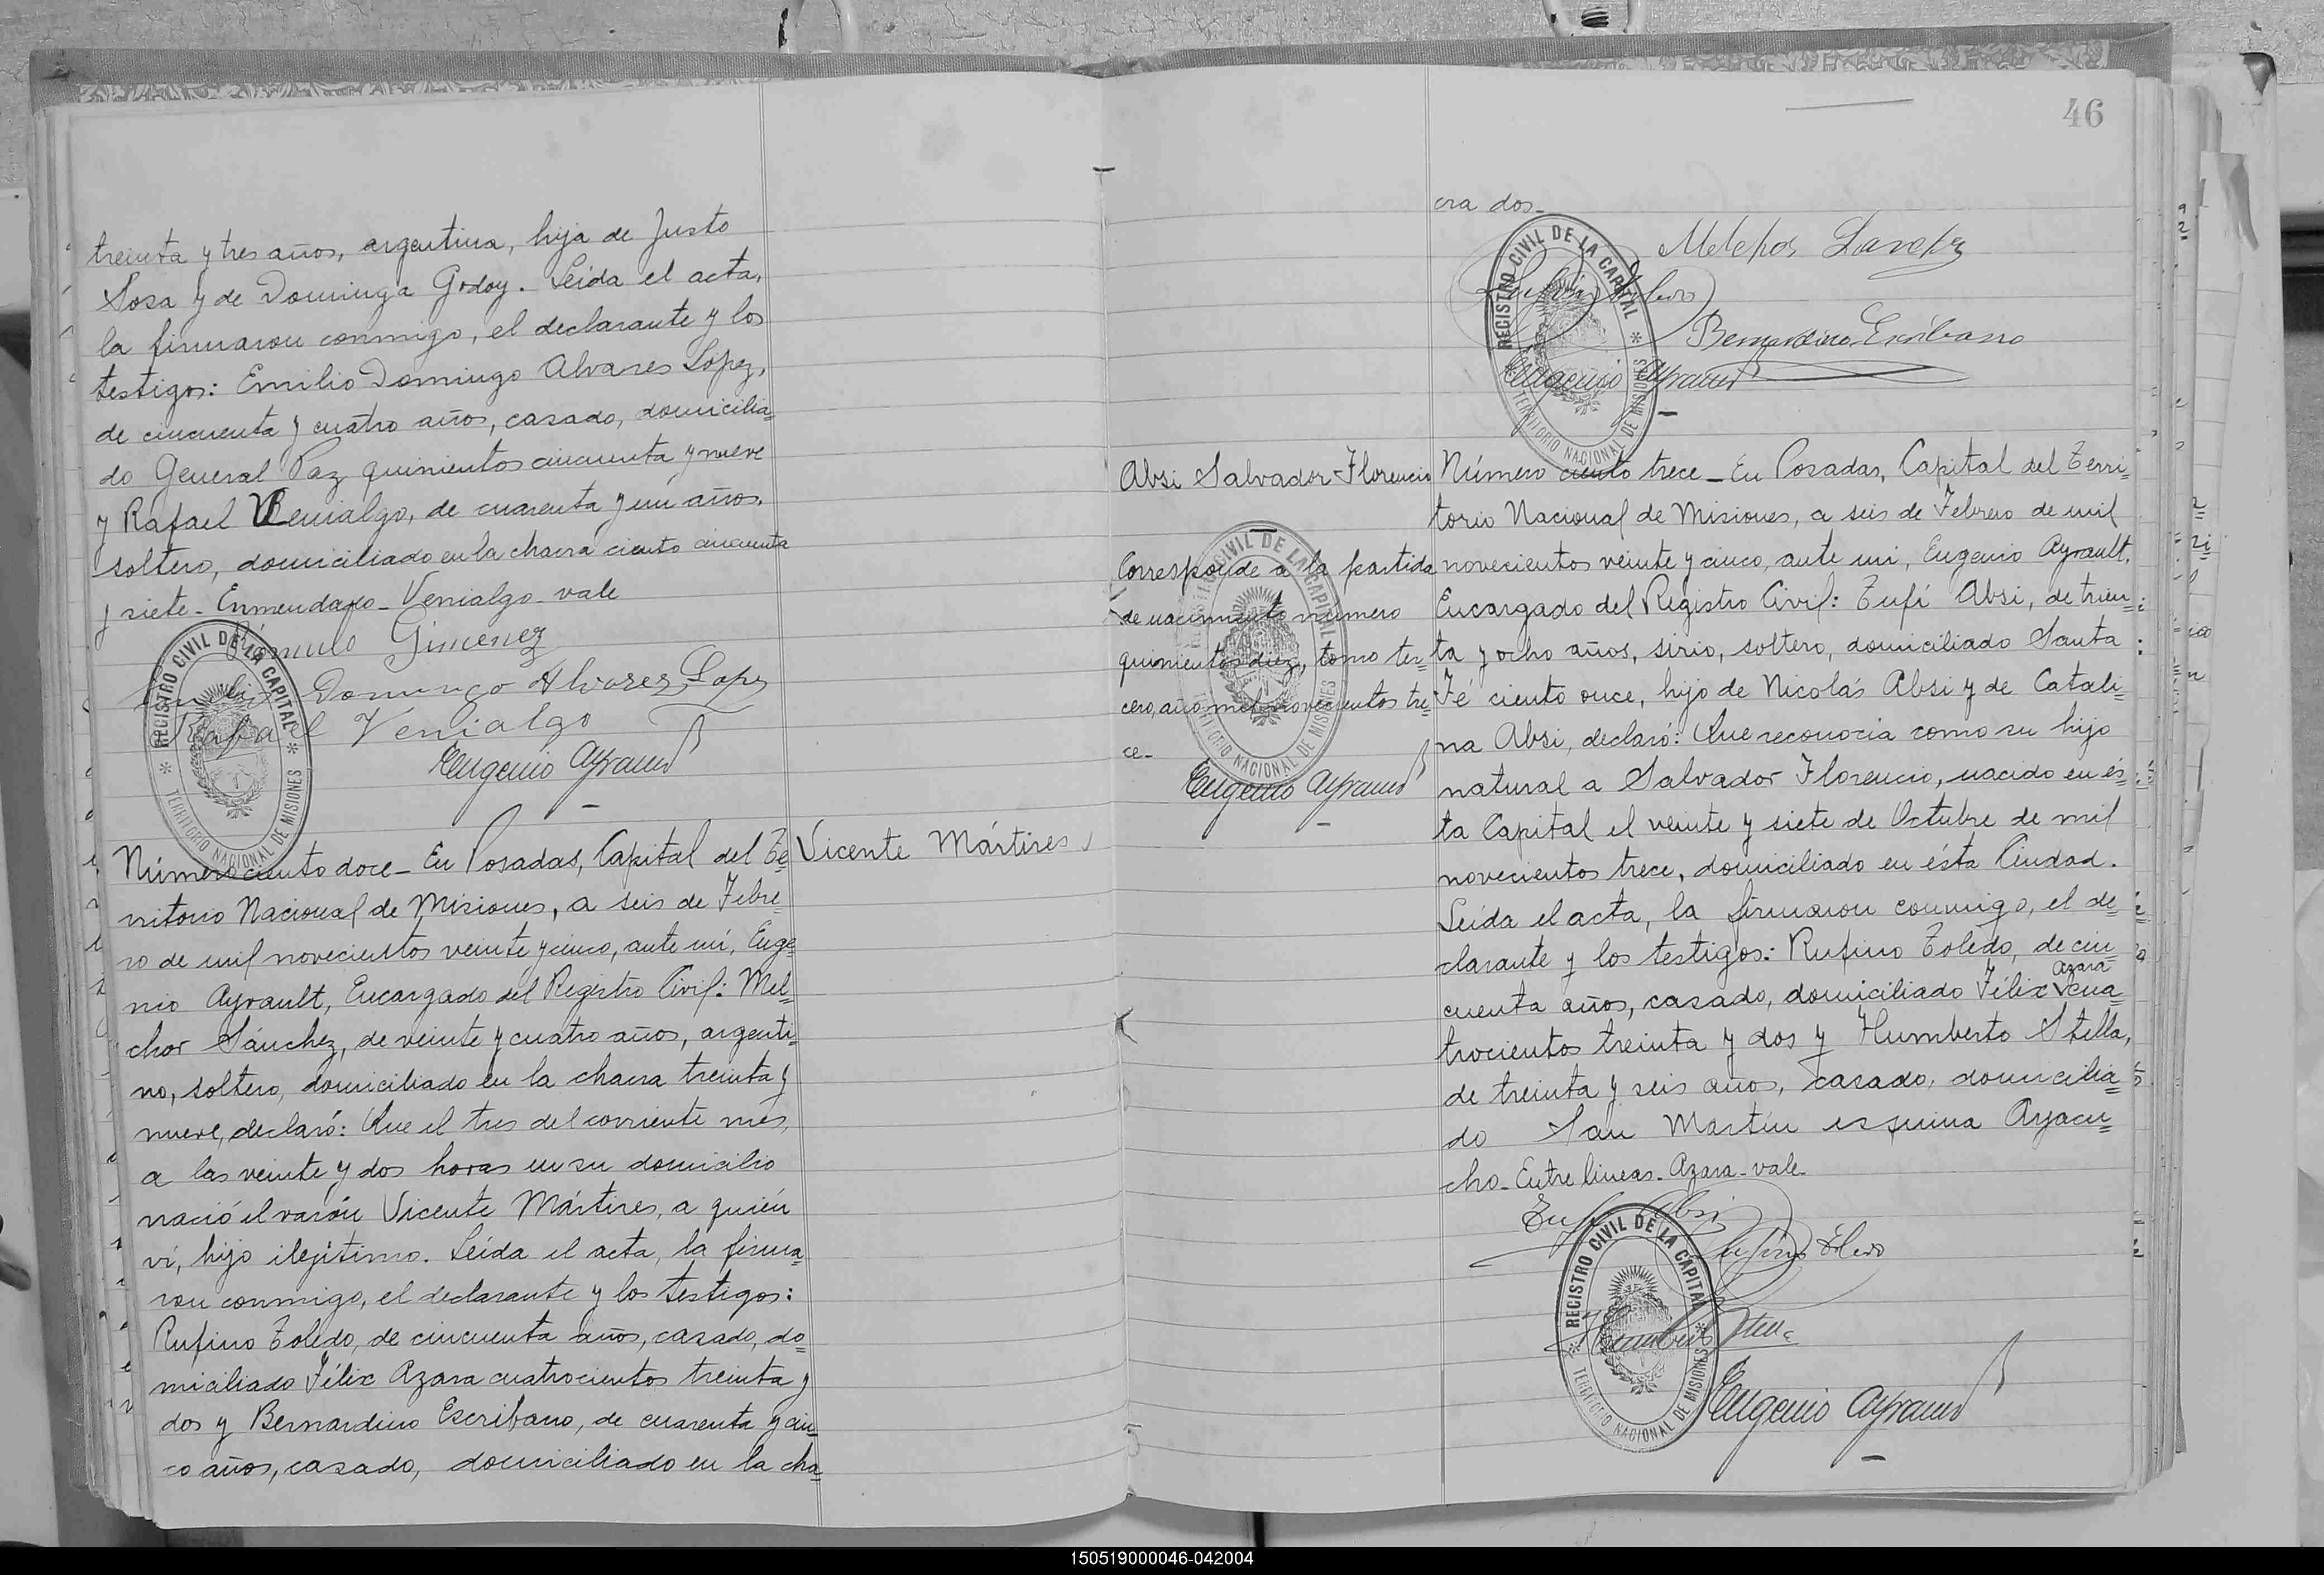 treinta y tres años, argentina, hija de Justo
Sosa y de Dominga Godoy. Leída el acta,
la firmaron conmigo, el declarante y los
testigos: Emilio Domingo Alvares López,
de cincuenta y cuatro años, casado, domicilia=
do General Paz quinientos cincuenta y nueve
y Rafael Venialgo, de cuarenta y un años,
soltero, domiciliado en la chacra ciento cincuenta
y siete - Enmendado - Venialgo - vale
Rómulo Gimenez
Emilio Domingo Alvarez Lopez
Rafael Venialgo
Eugenio Ayrault
REGISTRO CIVIL DE LA CAPITAL
* TERRITORIO NACIONAL DE MISIONES *
Vicente Mártires
Número ciento doce - En Posadas, Capital del Te=
rritorio Nacional de Misiones, a seis de Febre=
ro de mil novecientos veinte y cinco, ante mí, Euge=
nio Ayrault, Encargado del Registro Civil: Mel=
chor Sánchez, de veinte y cuatro años, argenti=
no, soltero, domiciliado en la chacra treinta y
nueve, declaró: Que el tres del corriente mes,
a las veinte y dos horas en su domicilio
nació el varón Vicente Mártires, a quién
ví, hijo ilegítimo. Leída el acta, la firma=
ron conmigo, el declarante y los testigos:
Rufino Toledo, de cincuenta años, casado, do=
miciliado Félix Azara cuatrocientos treinta y
dos y Bernardino Escribano, de cuarenta y cin=
co años, casado, domiciliado en la cha=
46
cra dos -
Bernardino Escribano
Eugenio Ayrault
REGISTRO CIVIL DE LA CAPITAL
* TERRITORIO NACIONAL DE MISIONES *
Absi Salvador Florencio
Corresponde a la partida
de nacimiento número
quinientos diez, tomo ter=
cero, año mil novecientos tre=
ce -
Eugenio Ayrault
REGISTRO CIVIL DE LA CAPITAL
TERRITORIO NACIONAL DE MISIONES
Número ciento trece - En Posadas, Capital del Terri=
torio Nacional de Misiones, a seis de Febrero de mil
novecientos veinte y cinco, ante mi, Eugenio Ayrault,
Encargado del Registro Civil: Tufí Absi, de trein=
ta y ocho años, sirio, soltero, domiciliado Santa
Fé ciento once, hijo de Nicolás Absi y de Catali=
na Absi, declaró: Que reconocia como su hijo
natural a Salvador Florencio, nacido en és=
ta Capital el veinte y siete de Octubre de mil
novecientos trece, domiciliado en ésta Ciudad.
Leída el acta, la firmaron conmigo, el de=
clarante y los testigos: Rufino Toledo, de cin=
azara
cuenta años, casado, domiciliado Félix cua=
trocientos treinta y dos y Humberto Stella,
de treinta y seis años, casado, domicilia=
do San Martín esquina Ayacu=
cho - Entre lineas - Azara - vale
Tufi Absi
Rufino Toledo
Humberto Stella
Eugenio Ayrault
REGISTRO CIVIL DE LA CAPITAL
* TERRITORIO NACIONAL DE MISIONES *
150519000046-042004